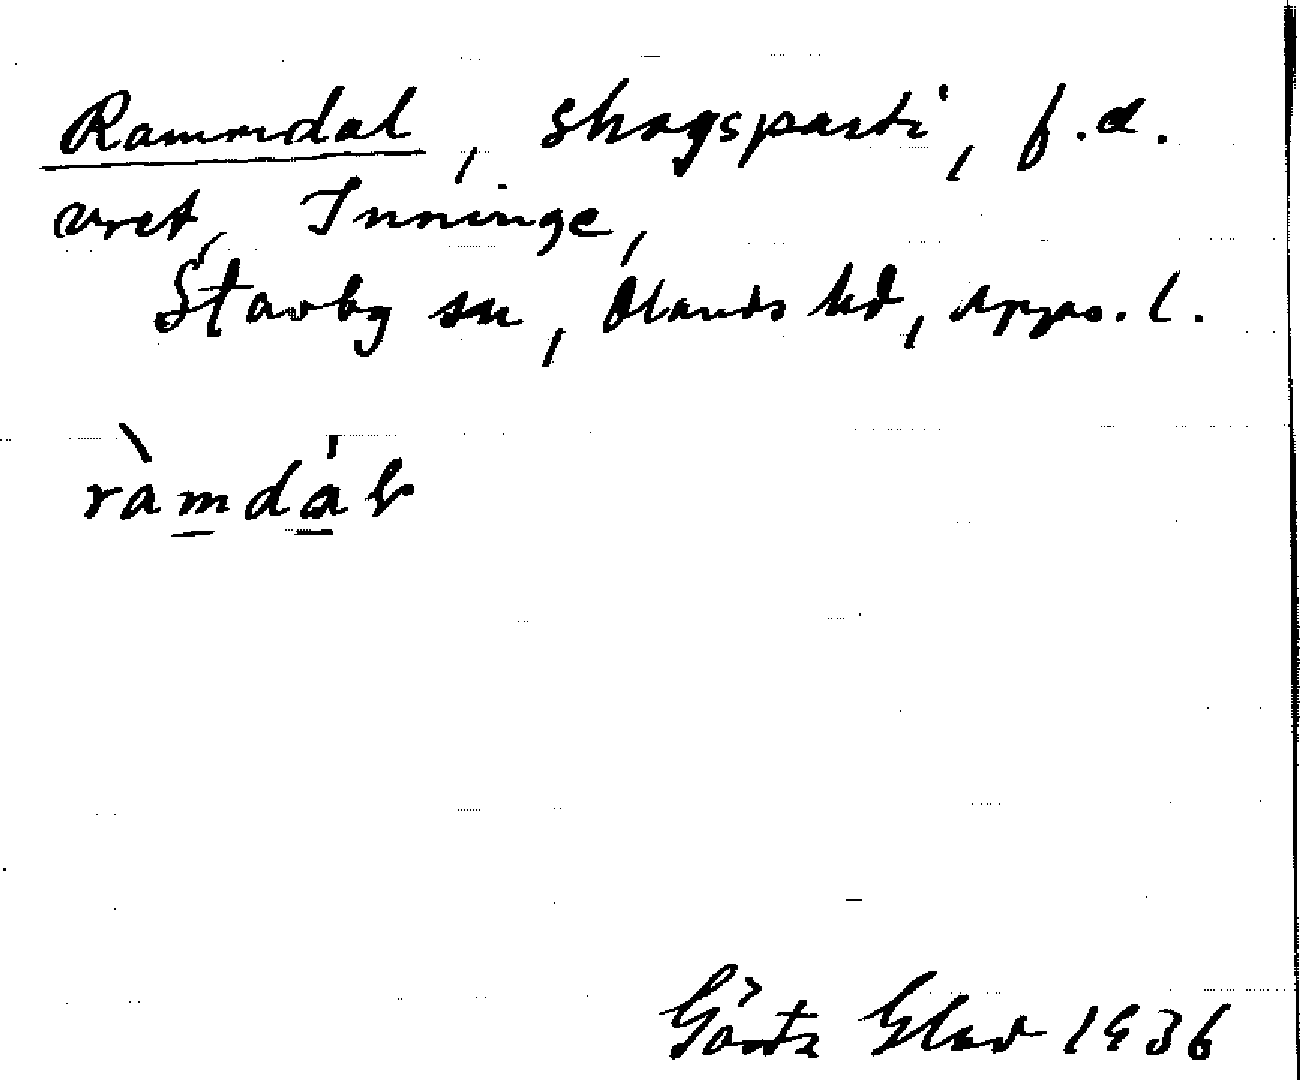 Rammdal, skogsparti, f.d.
vret, Inninge,
Stavby sn, Olands hd, Upps. l.
ràmdáƚ
Gösta Elav 1936